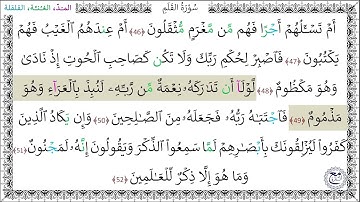 سُورَةُ القَلَمِ المد، الغنة، القلقلة
أَمْ تَسْـَٔلُهُمْ أَجْرًا فَهُم مِّن مَّغْرَمٍ مُّثْقَلُونَ ﴿46﴾ أَمْ عِندَهُمُ ٱلْغَيْبُ فَهُمْ
يَكْتُبُونَ ﴿47﴾ فَٱصْبِرْ لِحُكْمِ رَبِّكَ وَلَا تَكُن كَصَاحِبِ ٱلْحُوتِ إِذْ نَادَىٰ
وَهُوَ مَكْظُومٌ ﴿48﴾ لَّوْلَآ أَن تَدَٰرَكَهُۥ نِعْمَةٌ مِّن رَّبِّهِۦ لَنُبِذَ بِٱلْعَرَآءِ وَهُوَ
مَذْمُومٌ ﴿49﴾ فَٱجْتَبَٰهُ رَبُّهُۥ فَجَعَلَهُۥ مِنَ ٱلصَّٰلِحِينَ ﴿50﴾ وَإِن يَكَادُ ٱلَّذِينَ
كَفَرُوا۟ لَيُزْلِقُونَكَ بِأَبْصَٰرِهِمْ لَمَّا سَمِعُوا۟ ٱلذِّكْرَ وَيَقُولُونَ إِنَّهُۥ لَمَجْنُونٌ ﴿51﴾
وَمَا هُوَ إِلَّا ذِكْرٌ لِّلْعَٰلَمِينَ ﴿52﴾